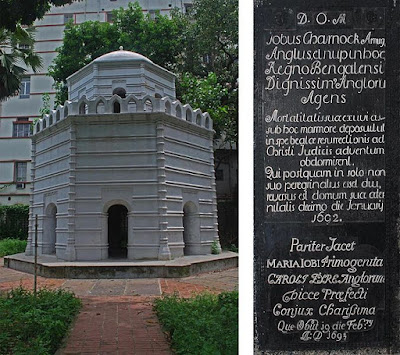 D. O. M.
Jobus Charnock Armigr
Anglus & nup in hoc
Regno Bengalensi
Dignissim Anglorum
Agens
Mortalitatis suæ exuvias
sub hoc marmore deposuit ut
in spe beatæ resurrectionis ad
Christi Judicis adventum
obdormirent.
Qui postquam in solo non
suo peregrinatus esset diu,
reversus est domum suæ æter
nitatis decimo die Januarij
1692.
Pariter Jacet
MARIA IOBI Primogenita
CAROLI EYRE Anglorum
hicce Præfecti
Conjux Charissima
Que Obiit 19 die Febr
A.D. 169